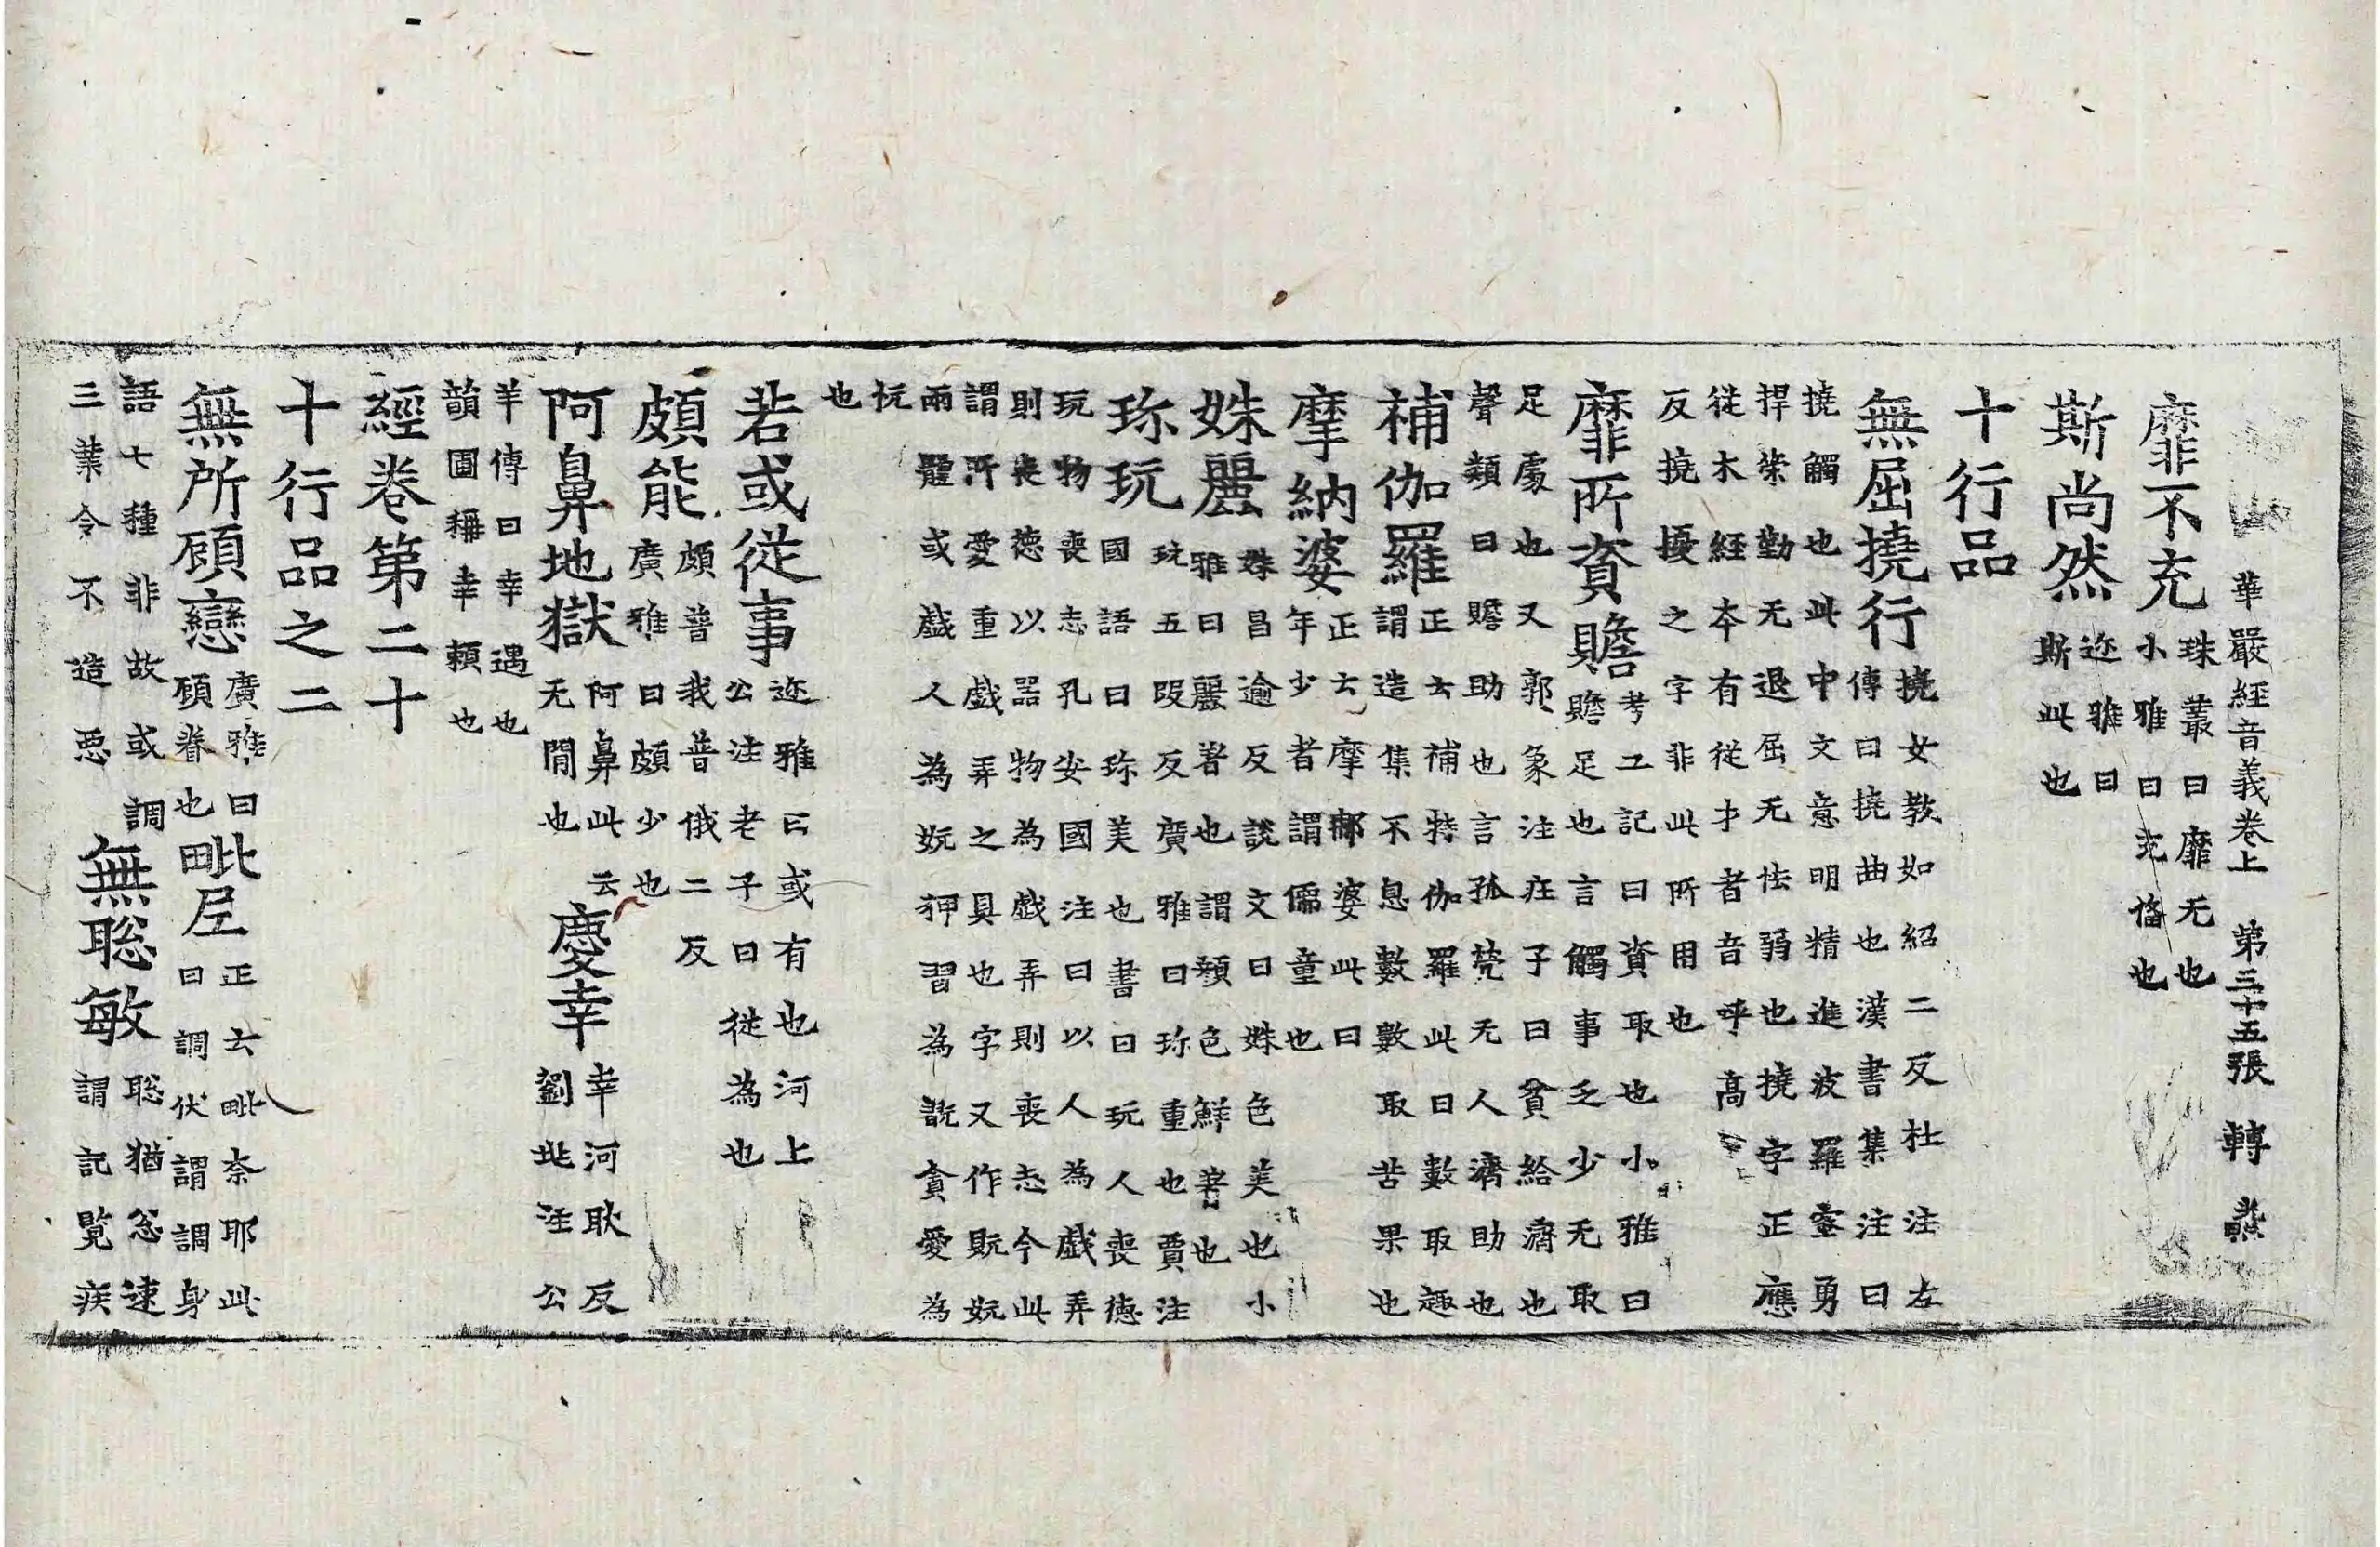 華嚴經音義卷上 第三十五張 轉
靡不充 珠叢曰靡无也
小雅曰充俻也
斯尚然 迩雅曰
斯此也
十行品
無屈撓行 撓女教如紹二反杜注左
傳曰撓曲也漢書集注曰
撓觸也此中文意明精進波羅蜜勇
捍策勤无退屈无怯弱也撓字正應
從木經夲有從扌者音呼高
反撓擾之字非此所用也
靡所資贍 考工記曰資取也小雅曰
贍足也言觸事乏少无取
足處也又郭象注庄子曰貧給濟也
聲類曰贍助也言孤茕无人濟助也
補伽羅 正云補特伽羅此曰數取趣
謂造集不息數數取苦果也
摩納婆 正云摩那婆此曰
年少者謂儒童也
姝麗 姝昌逾反說文曰姝色美也小
雅曰麗著也謂顏色鮮著也
珎玩 玩五段反廣雅曰珎重也賈注
國語曰珎美也書曰玩人喪德
玩物喪志孔安國注曰以人為戲弄
則喪德以器物為戲弄則喪志今此
謂所愛重戲弄之具也字又作貦妧
兩體或戲人為妧狎習為翫貪愛為
忨
也
若或從事 迩雅曰或有也河上
公注老子曰從為也
頗能 頗普我普俄二反
廣雅曰頗少也
阿鼻地獄 阿鼻此云
无閒也
慶幸 幸河耿反
劉兆注公
羊傳曰幸遇也
韻圃稱幸賴也
經卷第二十
十行品之二
無所頋戀 廣雅曰
頋眷也
毗尼 正云毗奈耶此
曰調伏謂調身
語七種非故或調
三業令不造惡
無聡敏 聡猶忩速
謂記覽疾